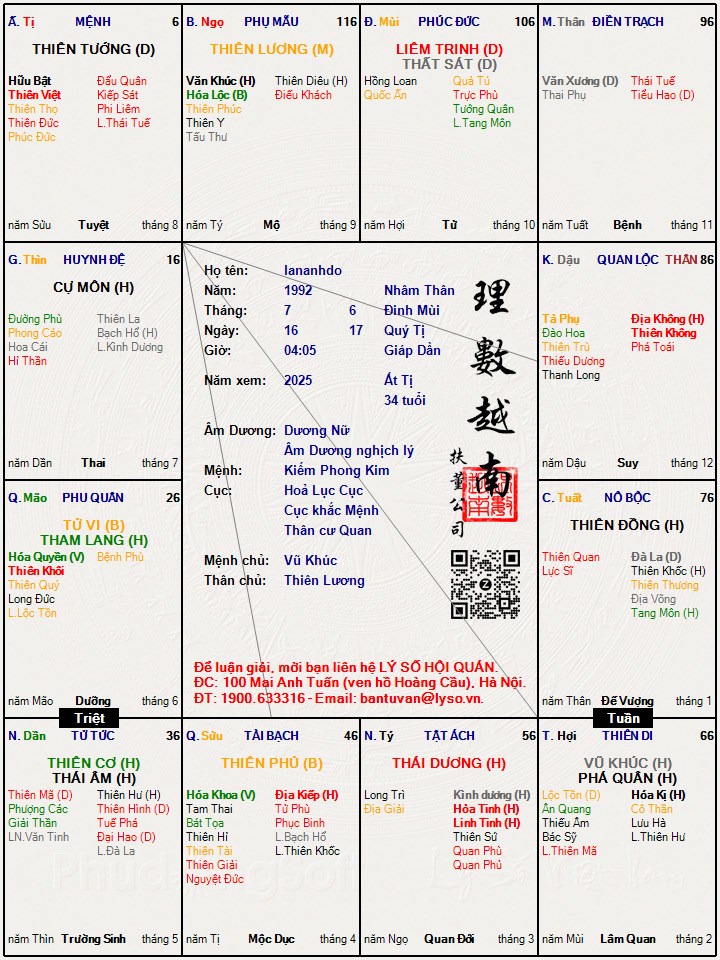 Ã. Tị MỆNH 6
THIÊN TƯỚNG (D)
Hữu Bật Đẩu Quân
Thiên Việt Kiếp Sát
Thiên Thọ Phi Liêm
Thiên Đức L.Thái Tuế
Phúc Đức
năm Sửu Tuyệt tháng 8
B. Ngọ PHỤ MẪU 116
THIÊN LƯƠNG (M)
Văn Khúc (H) Thiên Diêu (H)
Hóa Lộc (B) Điếu Khách
Thiên Phúc
Thiên Y
Tấu Thư
năm Tý Mộ tháng 9
Đ. Mùi PHÚC ĐỨC 106
LIÊM TRINH (D)
THẤT SÁT (D)
Hồng Loan Quả Tú
Quốc Ấn Trực Phù
Tướng Quân
L.Tang Môn
năm Hợi Tử tháng 10
M. Thân ĐIỀN TRẠCH 96
Văn Xương (D) Thái Tuế
Thai Phụ Tiểu Hao (D)
năm Tuất Bệnh tháng 11
G. Thìn HUYNH ĐỆ 16
CỰ MÔN (H)
Đường Phù Thiên La
Phong Cáo Bạch Hổ (H)
Hoa Cái L.Kình Dương
Hỉ Thần
năm Dần Thai tháng 7
Họ tên: lananhdo
Năm: 1992 Nhâm Thân
Tháng: 7 6 Đinh Mùi
Ngày: 16 17 Quý Tị
Giờ: 04:05 Giáp Dần
Năm xem: 2025 Ất Tị
34 tuổi
Âm Dương: Dương Nữ
Âm Dương nghịch lý
Mệnh: Kiếm Phong Kim
Cục: Hoả Lục Cục
Cục khắc Mệnh
Thân cư Quan
Mệnh chủ: Vũ Khúc
Thân chủ: Thiên Lương
理數越南
扶董公司
Để luận giải, mời bạn liên hệ LÝ SỐ HỘI QUÁN.
ĐC: 100 Mai Anh Tuấn (ven hồ Hoàng Cầu), Hà Nội.
ĐT: 1900.633316 - Email: bantuvan@lyso.vn.
K. Dậu QUAN LỘC THÂN 86
Tả Phụ Địa Không (H)
Đào Hoa Thiên Không
Thiên Trù Phá Toái
Thiếu Dương
Thanh Long
năm Dậu Suy tháng 12
Q. Mão PHU QUÂN 26
TỬ VI (B)
THAM LANG (H)
Hóa Quyền (V) Bệnh Phù
Thiên Khôi
Thiên Quý
Long Đức
L.Lộc Tồn
năm Mão Dưỡng tháng 6
C. Tuất NÔ BỘC 76
THIÊN ĐỒNG (H)
Thiên Quan Đà La (D)
Lực Sĩ Thiên Khốc (H)
Thiên Thương
Địa Võng
Tang Môn (H)
năm Thân Đế Vượng tháng 1
Triệt
Tuần
N. Dần TỬ TỨC 36
THIÊN CƠ (H)
THÁI ÂM (H)
Thiên Mã (D) Thiên Hư (H)
Phượng Các Thiên Hình (D)
Giải Thần Tuế Phá
LN.Văn Tinh Đại Hao (D)
L.Đà La
năm Thìn Trường Sinh tháng 5
Q. Sửu TÀI BẠCH 46
THIÊN PHỦ (B)
Hóa Khoa (V) Địa Kiếp (H)
Tam Thai Tử Phù
Bát Tọa Phục Binh
Thiên Hỉ L.Bạch Hổ
Thiên Tài L.Thiên Khốc
Thiên Giải
Nguyệt Đức
năm Tị Mộc Dục tháng 4
N. Tý TẬT ÁCH 56
THÁI DƯƠNG (H)
Long Trì Kình dương (H)
Địa Giải Hỏa Tinh (H)
Linh Tinh (H)
Thiên Sứ
Quan Phù
Quan Phủ
năm Ngọ Quan Đới tháng 3
T. Hợi THIÊN DI 66
VŨ KHÚC (H)
PHÁ QUÂN (H)
Lộc Tồn (D) Hóa Kị (H)
Ân Quang Cô Thần
Thiếu Âm Lưu Hà
Bác Sỹ L.Thiên Hư
L.Thiên Mã
năm Mùi Lâm Quan tháng 2